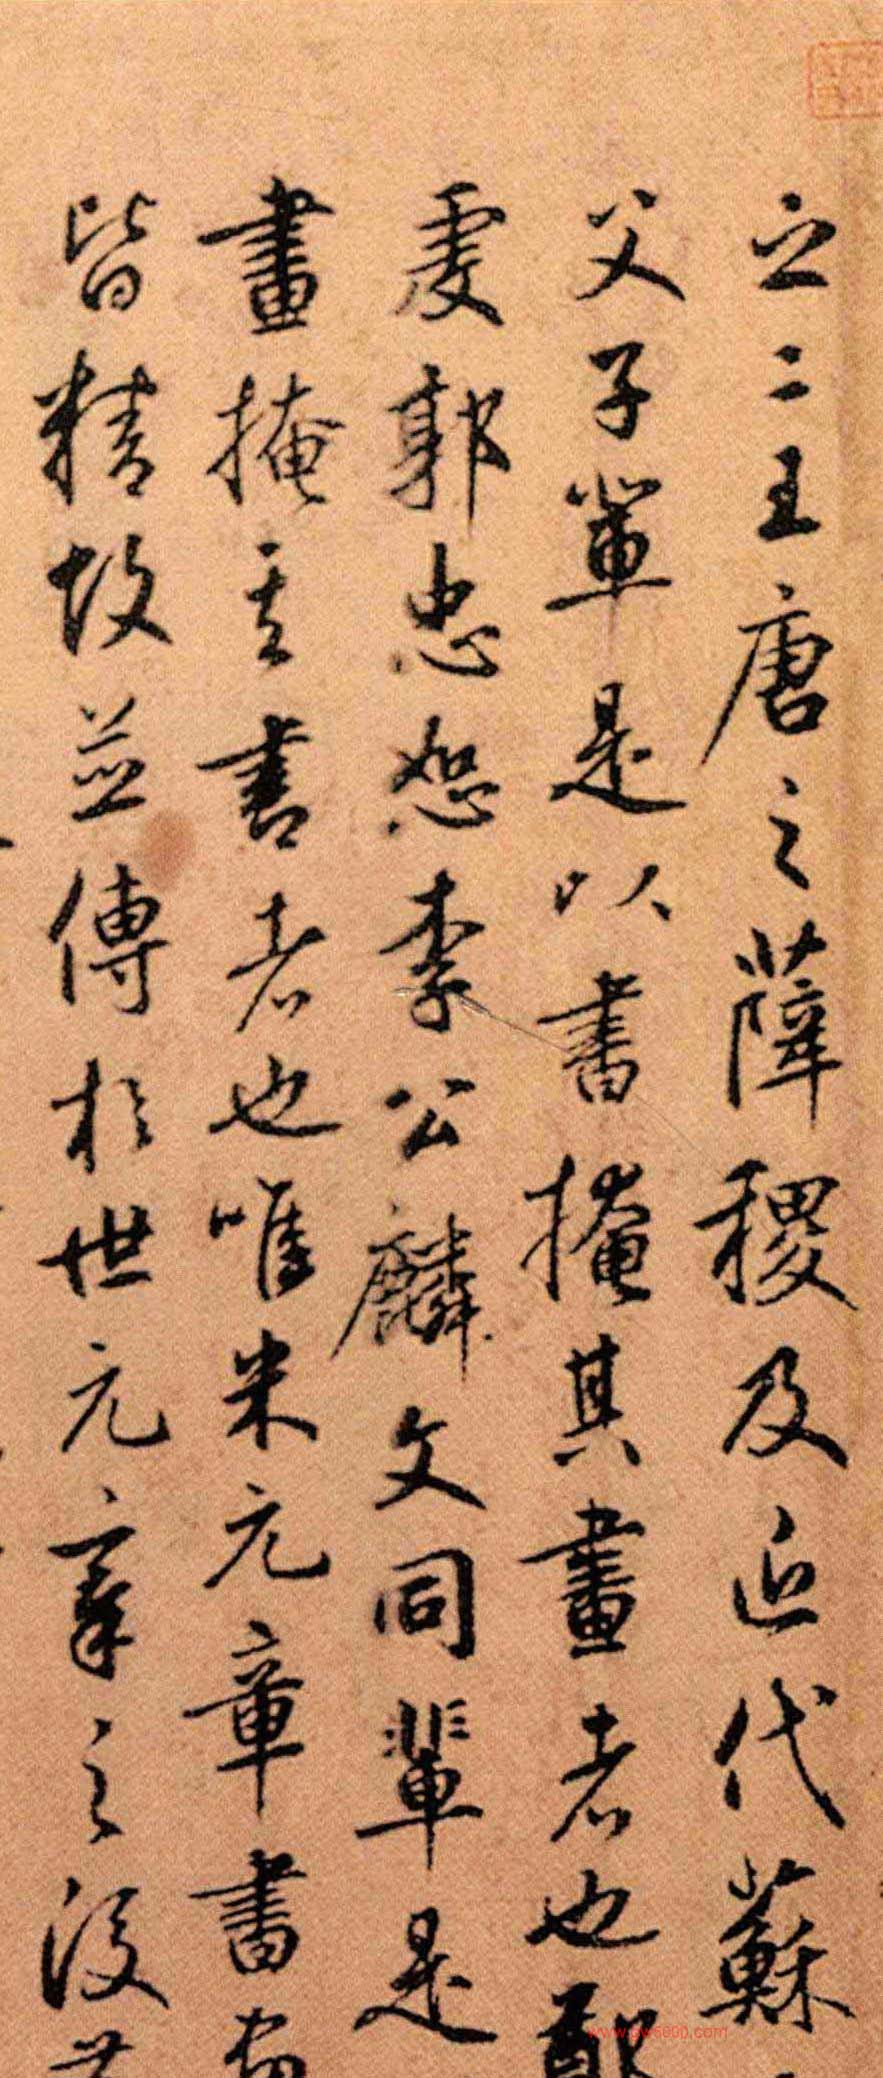 之二王唐之薛稷及近代蘇
父子輩是以書掩其畫者也鄭
虔郭忠恕李公麟文同輩是
畫掩其書者也唯米元章書畫
皆精故並傳於世元章之後